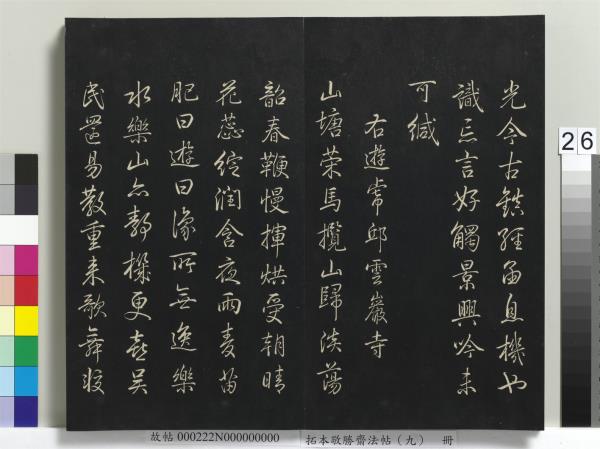 光今古經函息機也
識忘言好觸景興吟未
可緘
右遊虎邱雲巖寺
山塘策馬攬山歸淡蕩
韶春鞭慢揮烘受朝晴
花蕊綻潤含夜雨麥苗
肥曰遊曰豫所無逸樂
水樂山亦靜機更喜吳
民還易教重來歌舞較
26
故帖 000222N000000000
拓本敬勝齋法帖（九） 冊